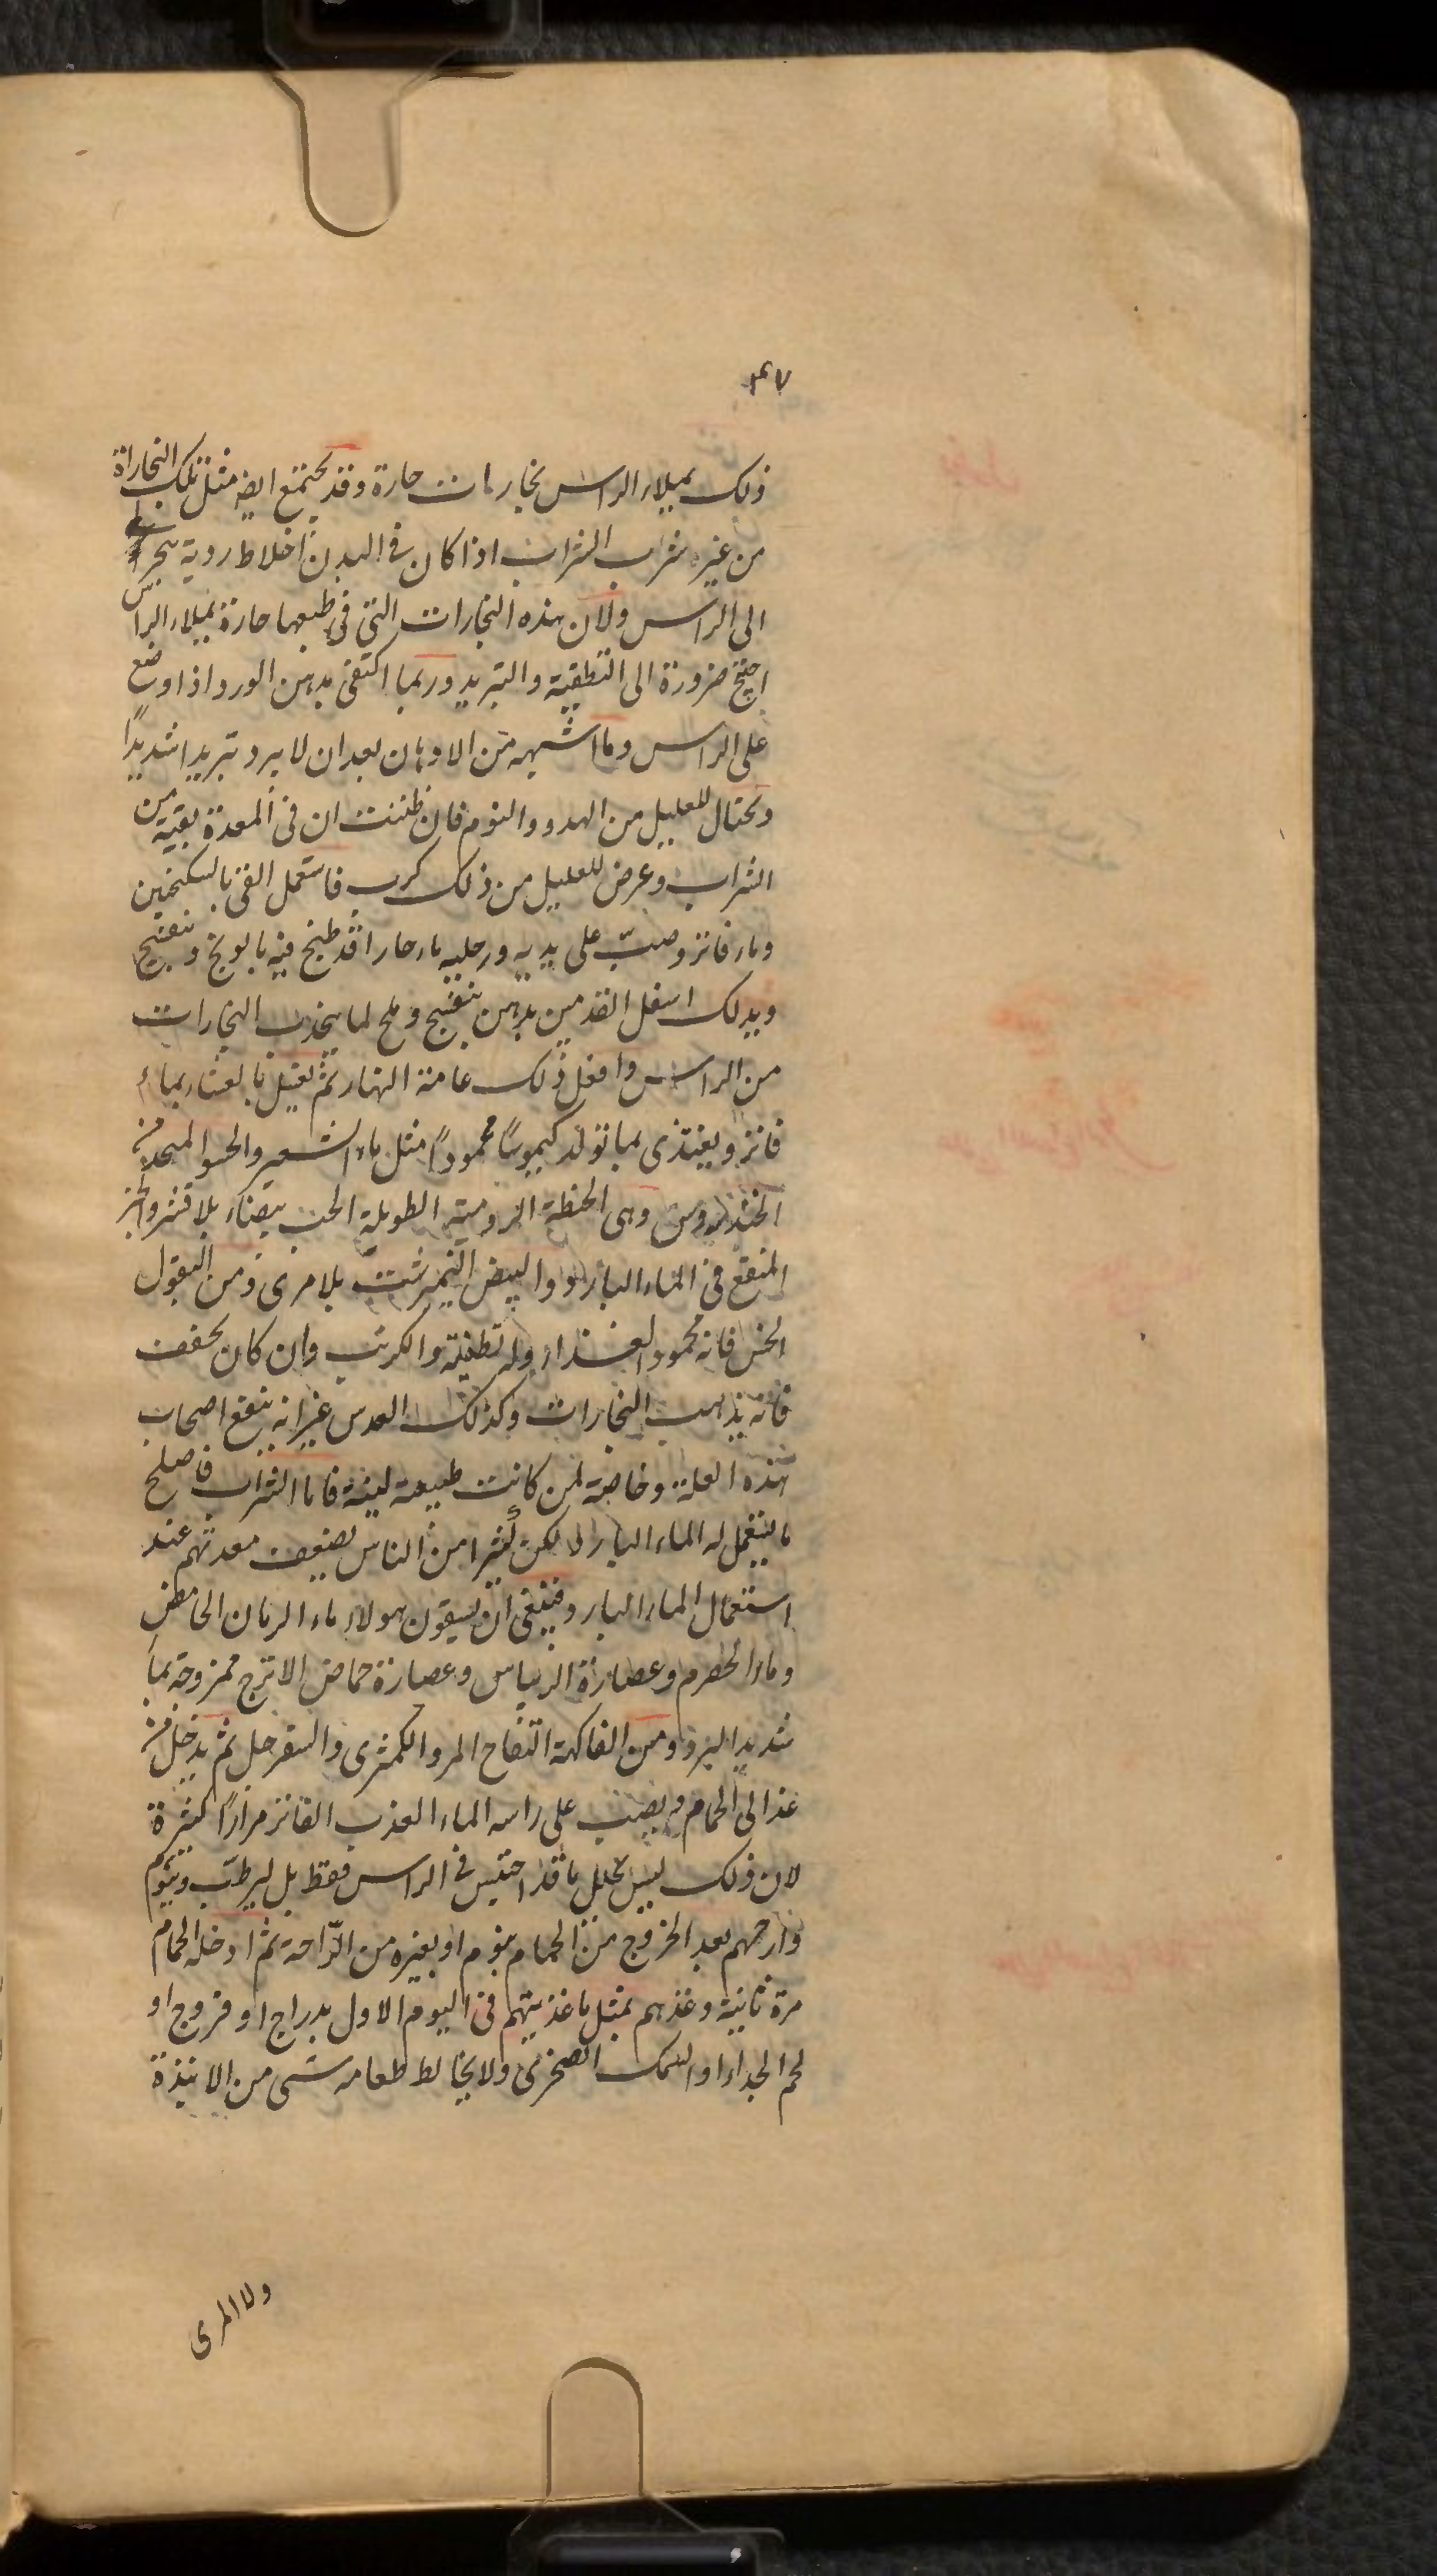 ٣٧
ذلك يملاء الراس بخارات حارة وقد يجتمع ايضا مثل تلك البخاراة
من غير شرب الشراب اذا كان فى البدن اخلاط ردية
الى الراس ولان هذه البخارات التى فى طبعها حارة يملاء الراس
احتيج ضرورة الى التطفية والتبريد وربما اكتفى بدهن الورد اذا وضع
على الراس وما اشبهه من الادهان بعد ان لا يبرد تبريدا شديدًا
ويحتال للعليل من الهدو والنوم فان ظننت ان فى المعدة بقية من
الشراب وعرض للعليل من ذلك كرب فاستعمل القى بالسكنجبين
وماء فاتر وصبّ على يديه ورجليه ماء حارا قد طبخ فيه بابونج وبنفسج
ويدلك اسفل القدمين بدهن بنفسج وملح لما يجذب البخارات
من الراس وافعل ذلك عامة النهار ثم يغسل بالعشاء بماء
فاتر ويغتذى بما تولد كيموسًا محمودًا مثل ماء الشعير والحسو المتخذ من
الخندروس وهى الحنطة الرومية الطويلة الحب بيضاء بلا قشر والخبز
المنقع فى الماء البارد والبيض النيمرشت بلا مرى ومن البقول
الخس فانه محمود الغذاء وله تطفية والكرنب وان كان يجفف
فانه يذهب البخارات وكذلك العدس غير انه ينفع اصحاب
هذه العلة وخاصة لمن كانت طبيعته لينة فاما الشراب فاصلح
ما يستعمل له الماء البارد لكن كثيرا من الناس يضعف معدتهم عند
استعمال الماء البارد فينبغى ان يسقون هولاء ماء الرمان الحامض
وماء الحصرم وعصارة الريباس وعصارة حماض الاترج ممزوجة بماء
شديد البرد ومن الفاكهة التفاح المر والكمثرى والسفرجل ثم يدخل من
غد الى الحمام ويصب على راسه الماء العذب الفاتر مرارًا كثيرة
لان ذلك ليس يحلل ما قد احتبس فى الراس فقط بل يرطّب وينوّم
وارحهم بعد الخروج من الحمام بنوم او بغيره من الرّاحة ثم ادخله الحمام
مرة ثانية وغذهم بمثل ما غذيتهم فى اليوم الاول بدراج او فروج او
لحم الجداء او السمك الصخرى ولا يخالط طعامه شى من الانبذة
ولا المرى